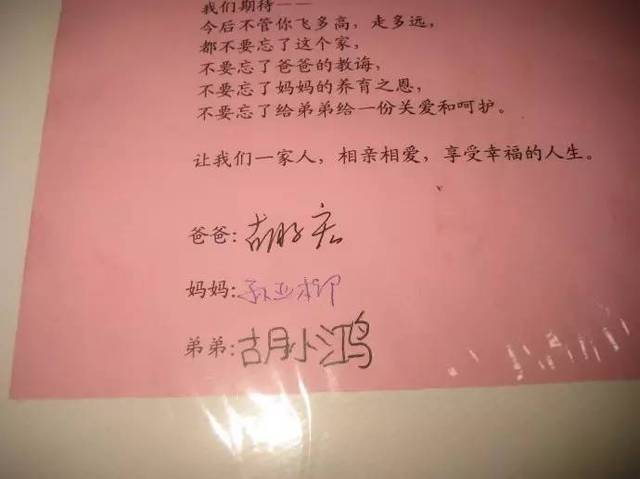 我们期待——
今后不管你飞多高，走多远，
都不要忘了这个家，
不要忘了爸爸的教诲，
不要忘了妈妈的养育之恩，
不要忘了给弟弟给一份关爱和呵护。
让我们一家人，相亲相爱，享受幸福的人生。
爸爸：胡
妈妈：孙亚柳
弟弟：胡小鸿